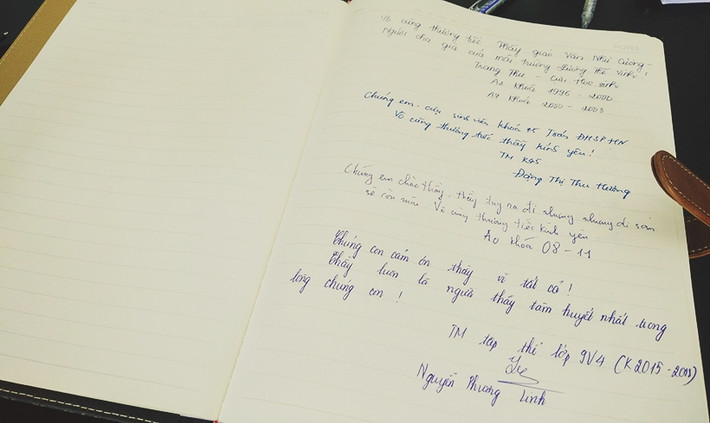 Vô cùng thương tiếc Thầy giáo Văn Như Cương -
người cha già của mái trường Lương Thế Vinh!
Trang Thu - cựu học sinh
A2 khoá 1996 - 2000
A7 khoá 2000 - 2003
Chúng em - cựu sinh viên khoá 45 Toán ĐHSPHN
Vô cùng thương tiếc thầy kính yêu!
TM K45
Đặng Thị Thu Hường
Chúng em chào thầy, thầy tuy ra đi nhưng di sản
sẽ còn mãi. Vô cùng thương tiếc kính yêu
A0 khóa 08 - 11
Chúng con cảm ơn thầy vì tất cả!
Thầy luôn là người thầy tâm huyết nhất trong
lòng chúng con!
TM tập thể lớp 9V4 (K2015 -
Nguyễn Phương Linh